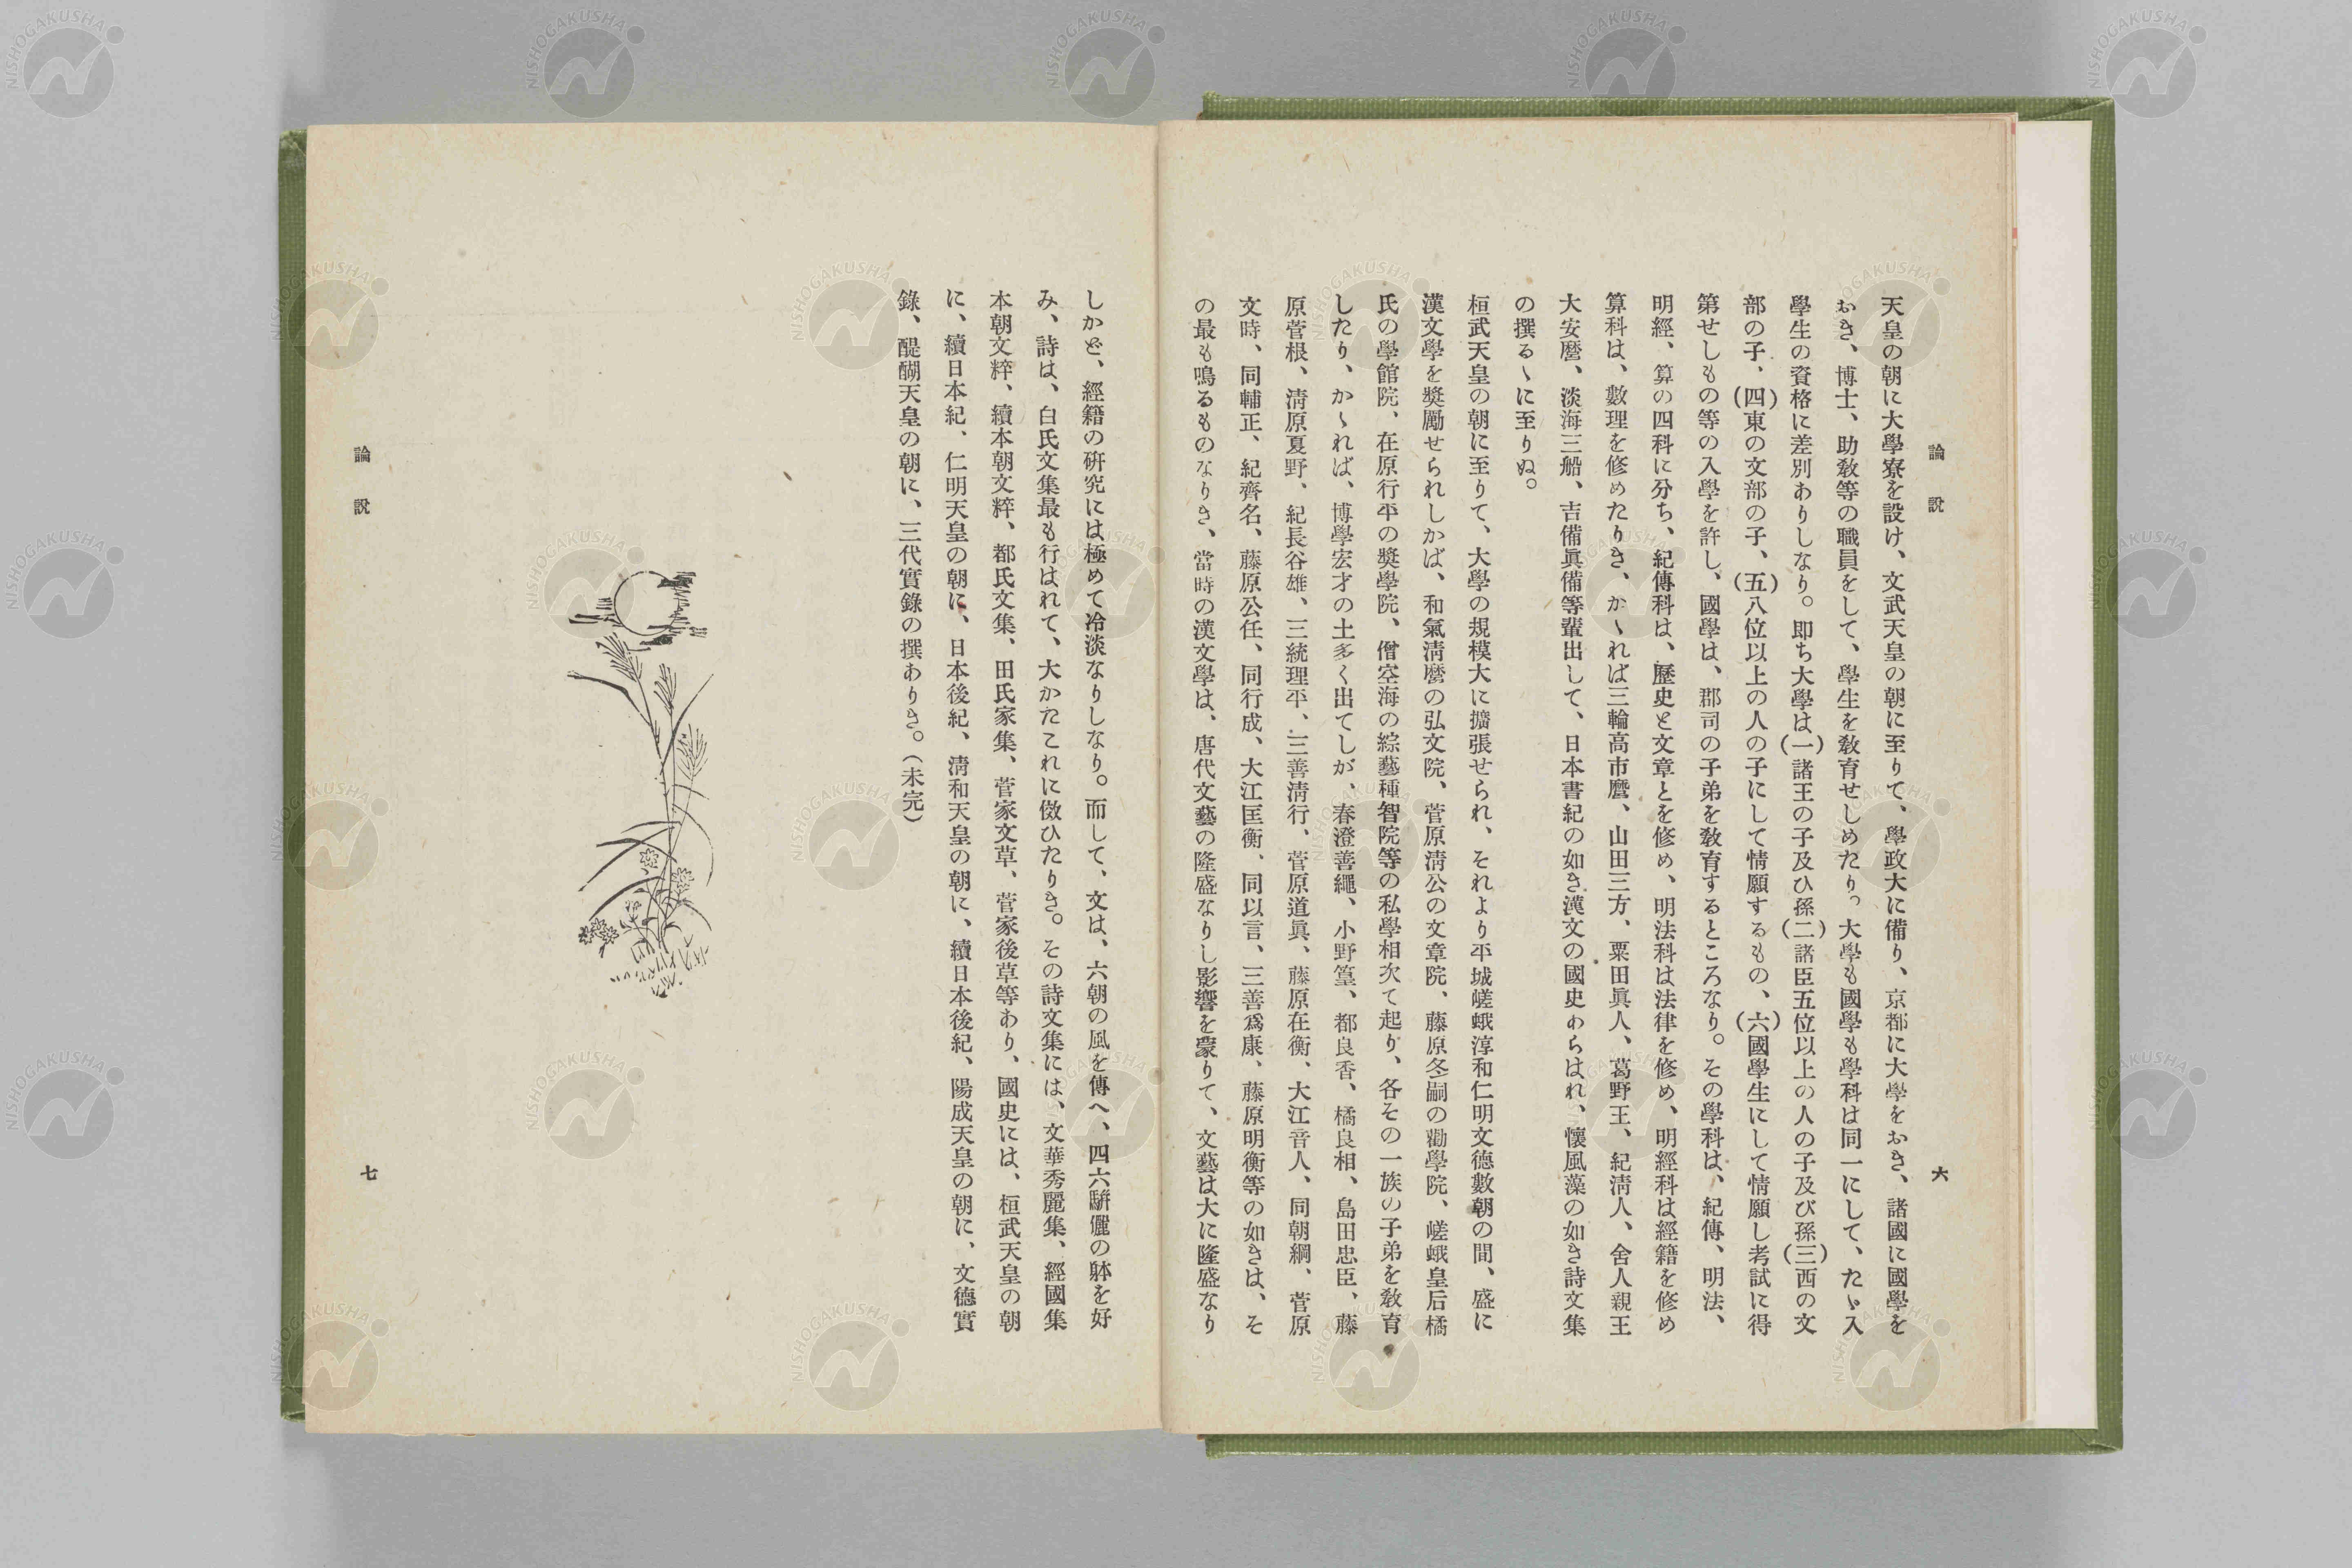 論說
六
天皇の朝に大學寮を設け、文武天皇の朝に至りて、學政大に備り、京都に大學をおき、諸國に國學を
おき、博士、助敎等の職員をして、學生を敎育せしめたり。大學も國學も學科は同一にして、たゞ入
學生の資格に差別ありしなり。即ち大學は(一)諸王の子及ひ孫(二)諸臣五位以上の人の子及び孫(三)西の文
部の子、(四)東の文部の子、(五)八位以上の人の子にして情願するもの、(六)國學生にして情願し考試に得
第せしもの等の入學を許し、國學は、郡司の子弟を敎育するところなり。その學科は、紀傳、明法、
明經、算の四科に分ち、紀傳科は、歷史と文章とを修め、明法科は法律を修め、明經科は經籍を修め
算科は、數理を修めたりき、かゝれば三輪高市麿、山田三方、粟田眞人、葛野王、紀淸人、舍人親王
大安麿、淡海三船、吉備眞備等輩出して、日本書紀の如き漢文の國史あらはれ、懷風藻の如き詩文集
の撰るゝに至りぬ。
桓武天皇の朝に至りて、大學の規模大に擴張せられ、それより平城嵯峨淳和仁明文德數朝の間、盛に
漢文學を奬勵せられしかば、和氣淸麿の弘文院、菅原淸公の文章院、藤原冬嗣の勸學院、嵯峨皇后橘
氏の學館院、在原行平の奬學院、僧空海の綜藝種智院等の私學相次て起り、各その一族の子弟を敎育
したり、かゝれば、博學宏才の士多く出てしが、春澄善繩、小野篁、都良香、橘良相、島田忠臣、藤
原菅根、淸原夏野、紀長谷雄、三統理平、三善淸行、菅原道眞、藤原在衡、大江音人、同朝綱、菅原
文時、同輔正、紀齊名、藤原公任、同行成、大江匡衡、同以言、三善爲康、藤原明衡等の如きは、そ
の最も鳴るものなりき、當時の漢文學は、唐代文藝の隆盛なりし影響を蒙りて、文藝は大に隆盛なり
しかど、經籍の硏究には極めて冷淡なりしなり。而して、文は、六朝の風を傳へ、四六駢儷の躰を好
み、詩は、白氏文集最も行はれて、大かたこれに傚ひたりき。その詩文集には、文華秀麗集、經國集
本朝文粹、續本朝文粹、都氏文集、田氏家集、菅家文草、菅家後草等あり、國史には、桓武天皇の朝
に、續日本紀、仁明天皇の朝に、日本後紀、淸和天皇の朝に、續日本後紀、陽成天皇の朝に、文德實
錄、醍醐天皇の朝に、三代實錄の撰ありき。(未完)
論說
七